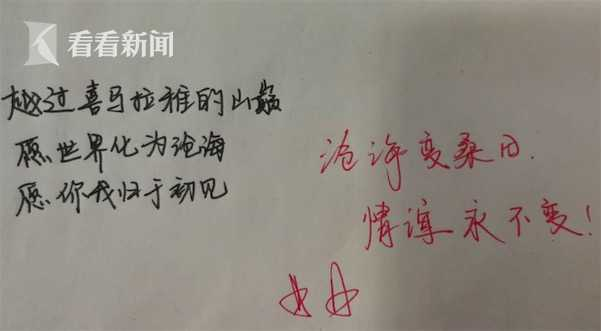 看看新闻
越过喜马拉雅的山巅
愿世界化为沧海
愿你我归于初见
沧海变桑田.
情谊永不变!